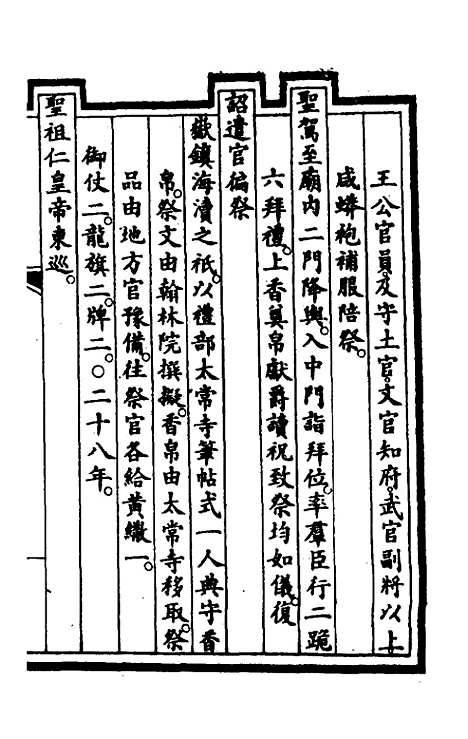 王公官員。及守土官。文官知府。武官副將以上
咸蟒袍補服陪祭。
聖駕至廟內二門降輿。入中門詣拜位。率羣臣行二跪
六拜禮。上香奠帛獻爵讀祝致祭均如儀。復
詔遣官徧祭
嶽鎮海瀆之祇。以禮部太常寺筆帖式一人典守香
帛。祭文由翰林院撰擬。香帛由太常寺移取。祭
品由地方官豫備。往祭官各給黃繖一。
御仗二。龍旗二。牌二。○二十八年。
聖祖仁皇帝東巡。